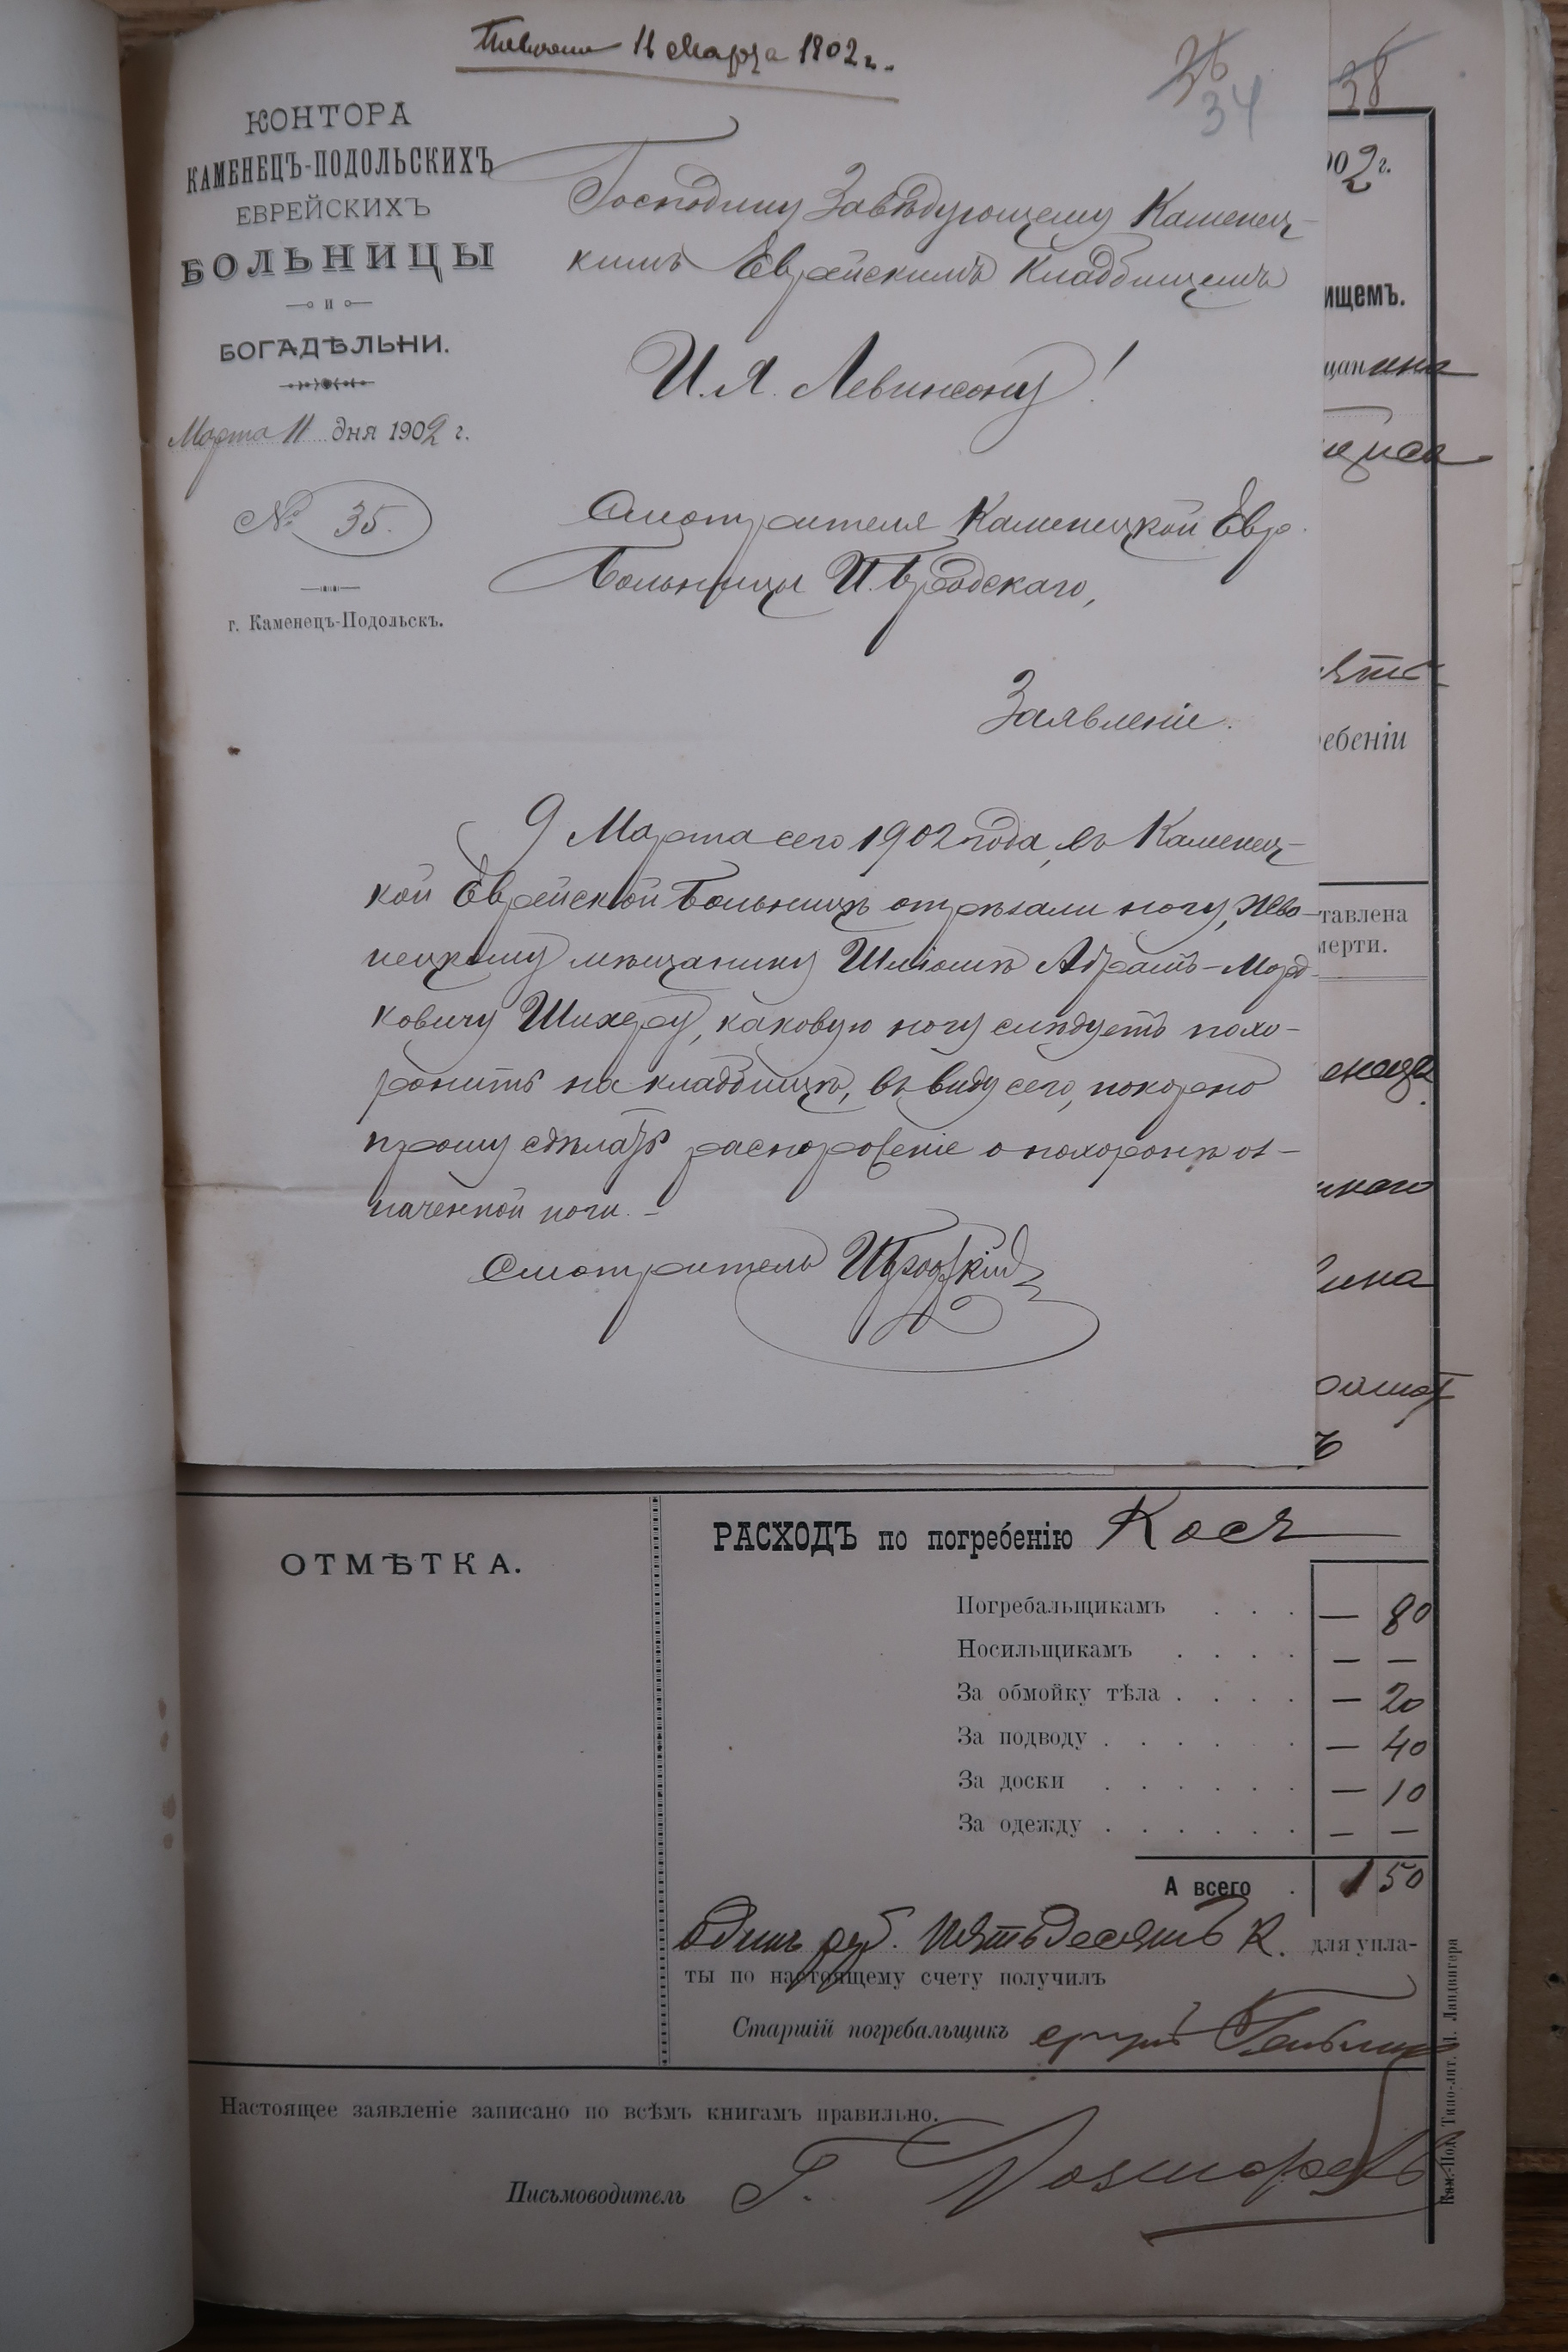 11 Марта 1902 г.
36
34
38
КОНТОРА
КАМЕНЕЦЪ-ПОДОЛЬСКИХЪ
ЕВРЕЙСКИХЪ
БОЛЬНИЦЫ
и
БОГАДѢЛЬНИ.
Марта 11 дня 1902 г.
№ 35.
г. Каменецъ-Подольскъ.
Господину Завѣдующему Каменец-
кимъ Еврейскимъ Кладбищемъ
И. Я. Левинсону!
Смотрителя Каменецкой Евр.
Больницы И. Бродскаго,
Заявленіе.
9 Марта сего 1902 года, въ Каменец-
кой Еврейской Больницѣ отрѣзали ногу, Жва-
нецкому мѣщанину Шліомѣ Абрамъ-Морд-
ковичу Шихеру, каковую ногу слѣдуетъ похо-
ронить на кладбищѣ, въ виду сего, покорно
прошу сдѣлать распоряженіе о похоронѣ оз-
наченной ноги. –
Смотритель ИБродскій
902 г.
ищемъ.
щанина
ребеніи
тавлена
мерти.
ОТМѢТКА.
РАСХОДЪ по погребенію Кося
Погребальщикамъ . . . — 80
Носильщикамъ . . . . — —
За обмойку тѣла . . . . — 20
За подводу . . . . . — 40
За доски . . . . . — 10
За одежду . . . . . . — —
А всего . 1 50
Одинъ руб. пятьдесятъ к. для упла-
ты по настоящему счету получилъ
Старшій погребальщикъ
Настоящее заявленіе записано по всѣмъ книгамъ правильно.
Письмоводитель Г.
Кам.-Под. Типо-лит. Ландвигера